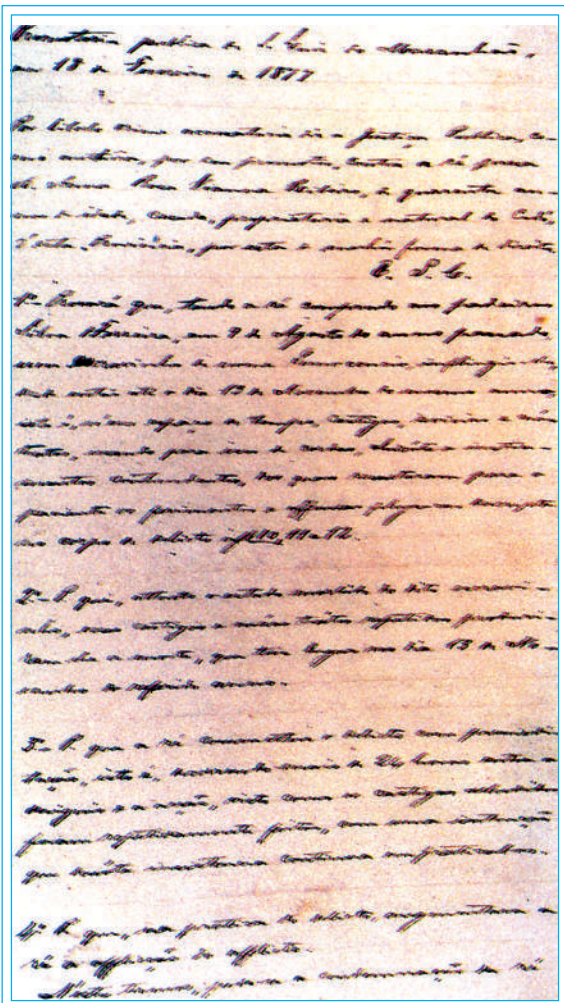 Promotoria publica de S. Luis do Maranhão,
em 13 de Fevereiro de 1877
Por libello crime accusatorio diz a Justiça Publica, co-
mo autora, por seu promotor, contra a ré presa
D. Anna Rosa Vianna Ribeiro, de quarenta an-
nos de idade, casada, proprietaria e natural do Codó,
d'esta Provincia, por esta e melhor forma de direito,
E. S. C.
1º Provará que, tendo a ré comprado ao
Silva Ferreira, em 9 de Agosto do anno passado,
um escravinho de nome Innocencio, infligio-lhe,
até o dia 13 de Novembro do mesmo anno,
isto é, n'esse espaço de tempo, castigos, sevicias e máos
tratos, usando para isso de cordas, e instru-
mentos contundentes, dos quaes resultaram para o
paciente os ferimentos e offensas physicas
no corpo de delicto 10, 11 e 12.
2º P. que, attento o estado morbido do dito escravi-
nho, esses castigos e máos tratos repetidos produzi-
ram-lhe a morte, que teve lugar no dia 13 de No-
vembro do referido anno.
3º P. que a ré commetteu o delicto com premedi-
tação, isto é, decorrendo mais de 24 horas entre o
designio e a acção, visto como os castigos
foram repetidamente feitos, com uma intenção
que muito
4º P. que, na pratica do delicto, augmentou a
ré a afflicção ao afflicto.
N'estes termos, pede-se a condemnação da ré